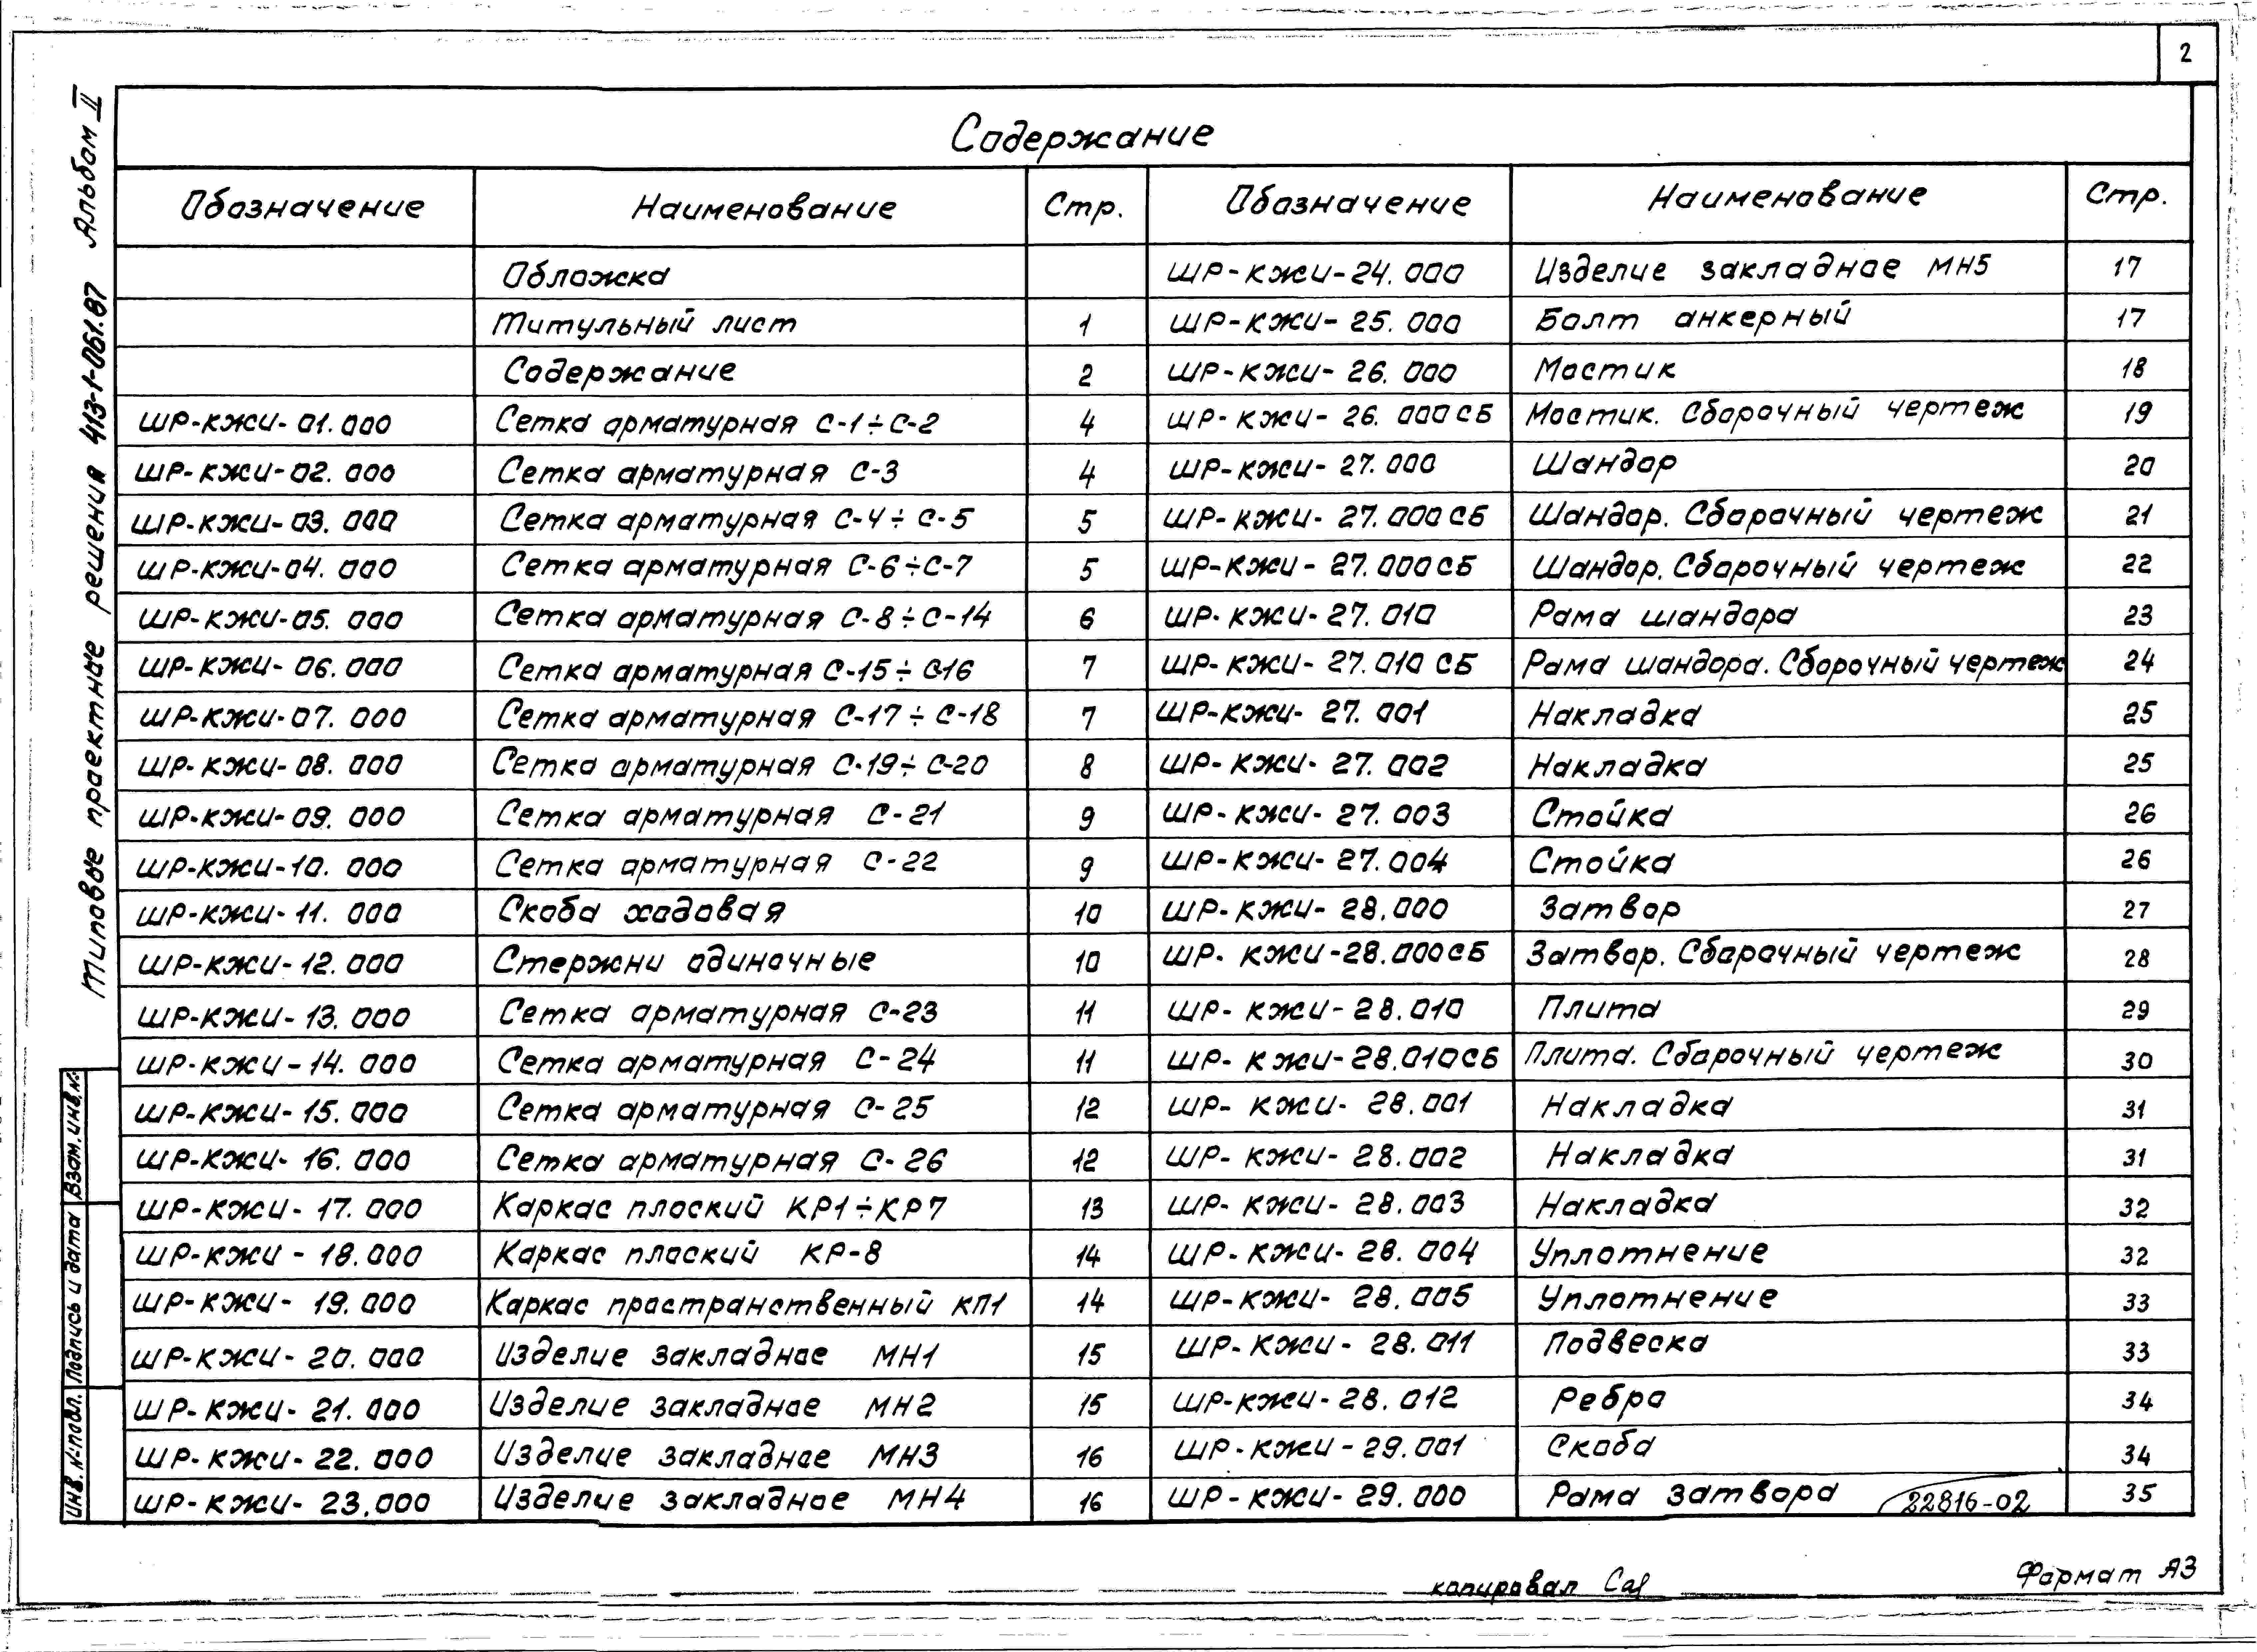 2
Содержание
Обозначение Наименование Стр. Обозначение Наименование Стр.
Обложка ШР-КЖИ-24.000 Изделие закладное МН5 17
Титульный лист 1 ШР-КЖИ-25.000 Болт анкерный 17
Содержание 2 ШР-КЖИ-26.000 Мостик 18
ШР-КЖИ-01.000 Сетка арматурная С-1÷С-2 4 ШР-КЖИ-26.000СБ Мостик. Сборочный чертеж 19
ШР-КЖИ-02.000 Сетка арматурная С-3 4 ШР-КЖИ-27.000 Шандор 20
ШР-КЖИ-03.000 Сетка арматурная С-4÷С-5 5 ШР-КЖИ-27.000СБ Шандор. Сборочный чертеж 21
ШР-КЖИ-04.000 Сетка арматурная С-6÷С-7 5 ШР-КЖИ-27.000СБ Шандор. Сборочный чертеж 22
ШР-КЖИ-05.000 Сетка арматурная С-8÷С-14 6 ШР-КЖИ-27.010 Рама шандора 23
ШР-КЖИ-06.000 Сетка арматурная С-15÷С16 7 ШР-КЖИ-27.010 СБ Рама шандора. Сборочный чертеж 24
ШР-КЖИ-07.000 Сетка арматурная С-17÷С-18 7 ШР-КЖИ-27.001 Накладка 25
ШР-КЖИ-08.000 Сетка арматурная С-19÷С-20 8 ШР-КЖИ-27.002 Накладка 25
ШР-КЖИ-09.000 Сетка арматурная С-21 9 ШР-КЖИ-27.003 Стойка 26
ШР-КЖИ-10.000 Сетка арматурная С-22 9 ШР-КЖИ-27.004 Стойка 26
ШР-КЖИ-11.000 Скоба ходовая 10 ШР-КЖИ-28.000 Затвор 27
ШР-КЖИ-12.000 Стержни одиночные 10 ШР-КЖИ-28.000СБ Затвор. Сборочный чертеж 28
ШР-КЖИ-13.000 Сетка арматурная С-23 11 ШР-КЖИ-28.010 Плита 29
ШР-КЖИ-14.000 Сетка арматурная С-24 11 ШР-КЖИ-28.010СБ Плита. Сборочный чертеж 30
ШР-КЖИ-15.000 Сетка арматурная С-25 12 ШР-КЖИ-28.001 Накладка 31
ШР-КЖИ-16.000 Сетка арматурная С-26 12 ШР-КЖИ-28.002 Накладка 31
ШР-КЖИ-17.000 Каркас плоский КР1÷КР7 13 ШР-КЖИ-28.003 Накладка 32
ШР-КЖИ-18.000 Каркас плоский КР-8 14 ШР-КЖИ-28.004 Уплотнение 32
ШР-КЖИ-19.000 Каркас пространственный КП1 14 ШР-КЖИ-28.005 Уплотнение 33
ШР-КЖИ-20.000 Изделие закладное МН1 15 ШР-КЖИ-28.011 Подвеска 33
ШР-КЖИ-21.000 Изделие закладное МН2 15 ШР-КЖИ-28.012 Ребро 34
ШР-КЖИ-22.000 Изделие закладное МН3 16 ШР-КЖИ-29.001 Скоба 34
ШР-КЖИ-23.000 Изделие закладное МН4 16 ШР-КЖИ-29.000 Рама затвора 35
22816-02
Типовые проектные решения 413-1-061.87 Альбом II
Инв. №подл. Подпись и дата Взам.инв.№
копировал
Формат А3